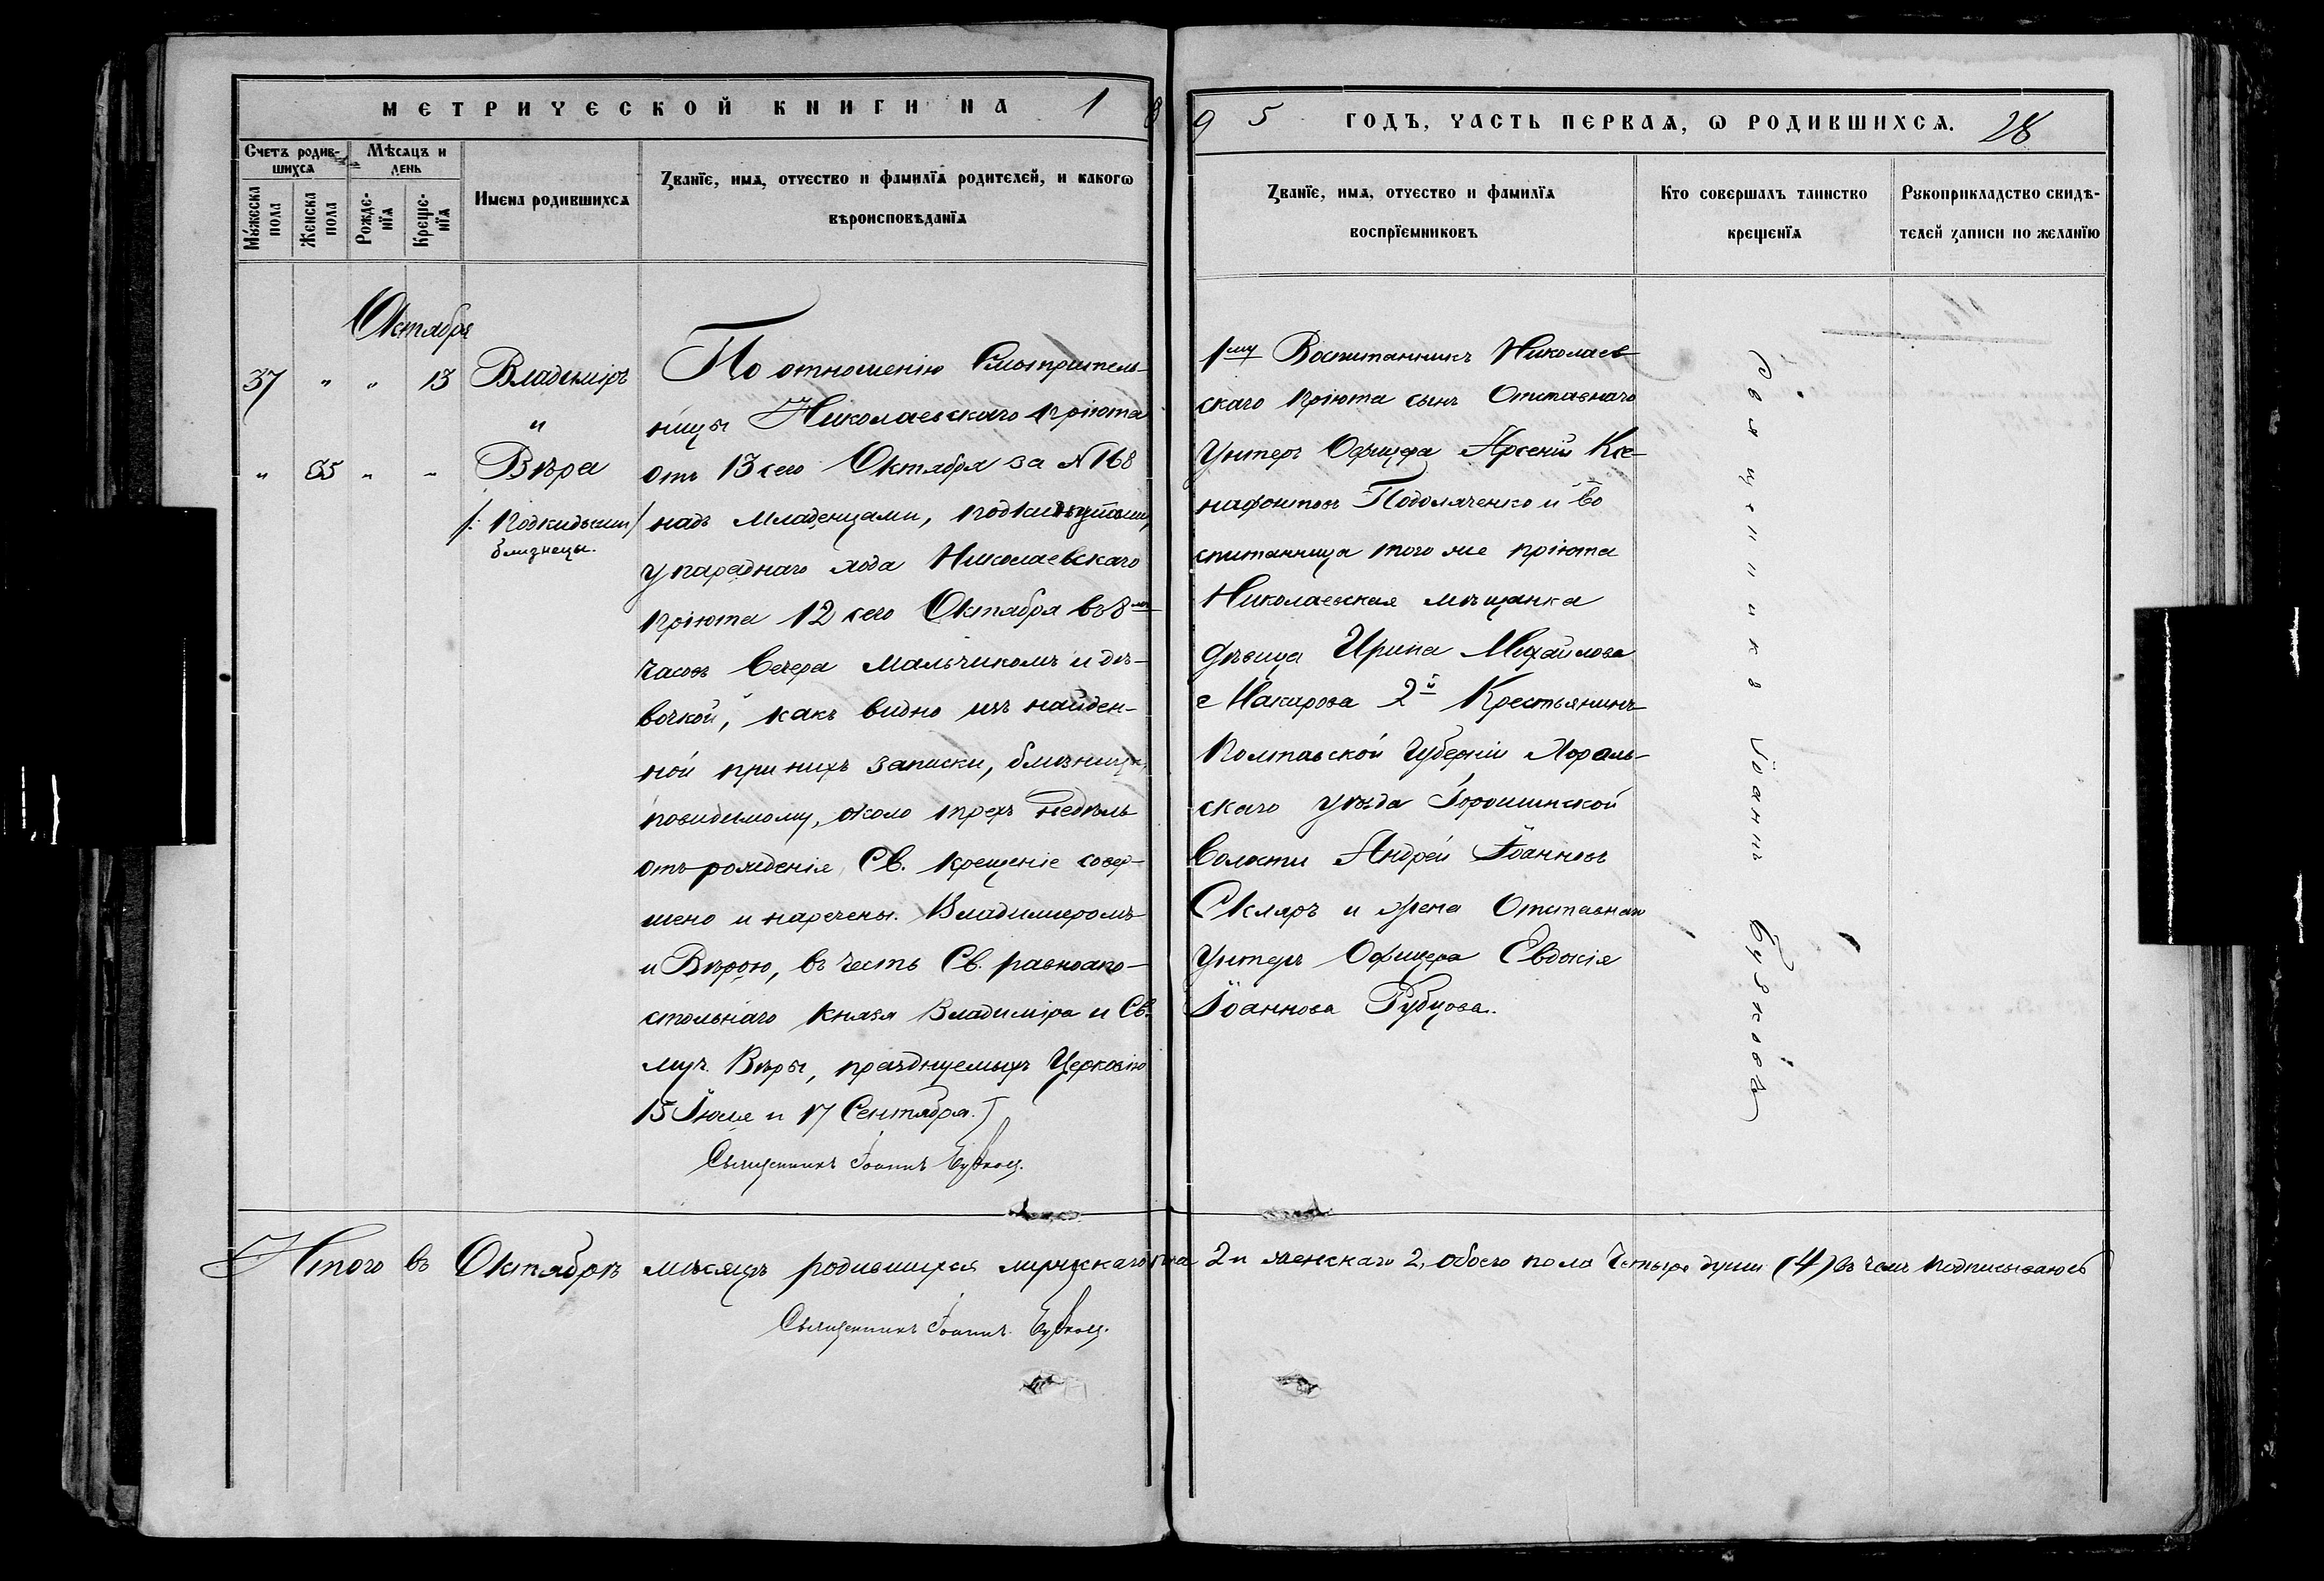 МЕТРИЧЕСКОЙ КНИГИ НА 18
95 ГОДЪ, ЧАСТЬ ПЕРВАЯ, Ѡ РОДИВШИХСЯ. 28
Счетъ родив-
шихся
Мѣсяцъ и
день
Мужеска
пола
Женска
пола
Рожде-
нїя
Креще-
нїя
Имена родившихся
Званїе, имя, отчество и фамилїя родителей, и какогѡ
вѣроисповѣданїя
Званїе, имя, отчество и фамилїя
воспрїемниковъ
Кто совершалъ таинство
крещенїя
Рукоприкладство свидѣ-
телей записи по желанїю
Октября
37 " " 13 Владиміръ
и
" 35 " " Вѣра
/: Подкидыши/
близнецы.
По отношенію Смотритель-
ницы Николаевскаго пріюта
отъ 13 сего Октября за №168
надъ младенцами, подкинутыми,
у параднаго хода Николаевскаго
пріюта 12 сего Октября въ 8мь
часовъ вечера мальчикомъ и дѣ-
вочкой, какъ видно изъ найден-
ной при нихъ записки, близнецы,
повидимому, около трехъ недѣль
отъ рожденія, Св. крещеніе совер-
шено и наречены. Владимиромъ
и Вѣрою, въ честь Св. равноапо-
стольнаго князя Владиміра и Св.
муч. Вѣры, празднуемыхъ Церковію
15 Іюля и 17 Сентября.
Священникъ Іоаннъ
1му Воспитанникъ Николаев
скаго пріюта сынъ Отставнаго
Унтеръ Офицера Арсеній Ксе-
нафонтовъ Подоляченко и во
спитанница того же пріюта
Николаевская мѣщанка
дѣвица Ирина Михайлова
Макарова 2й Крестьянинъ
Полтавской Губерніи Хороль-
скаго уѣзда Горошинской
Волости Андрей Іоанновъ
Скляръ и жена Отставнаго
Унтеръ Офицера Евдокія
Іоаннова Рубцова.
Священникъ Іоаннъ
Итого въ Октябрѣ мѣсяцѣ родившихся мужскаго пола 2 и женскаго 2, обоего пола Четыре души (4) въ чемъ подписываюсь
Священникъ Іоаннъ